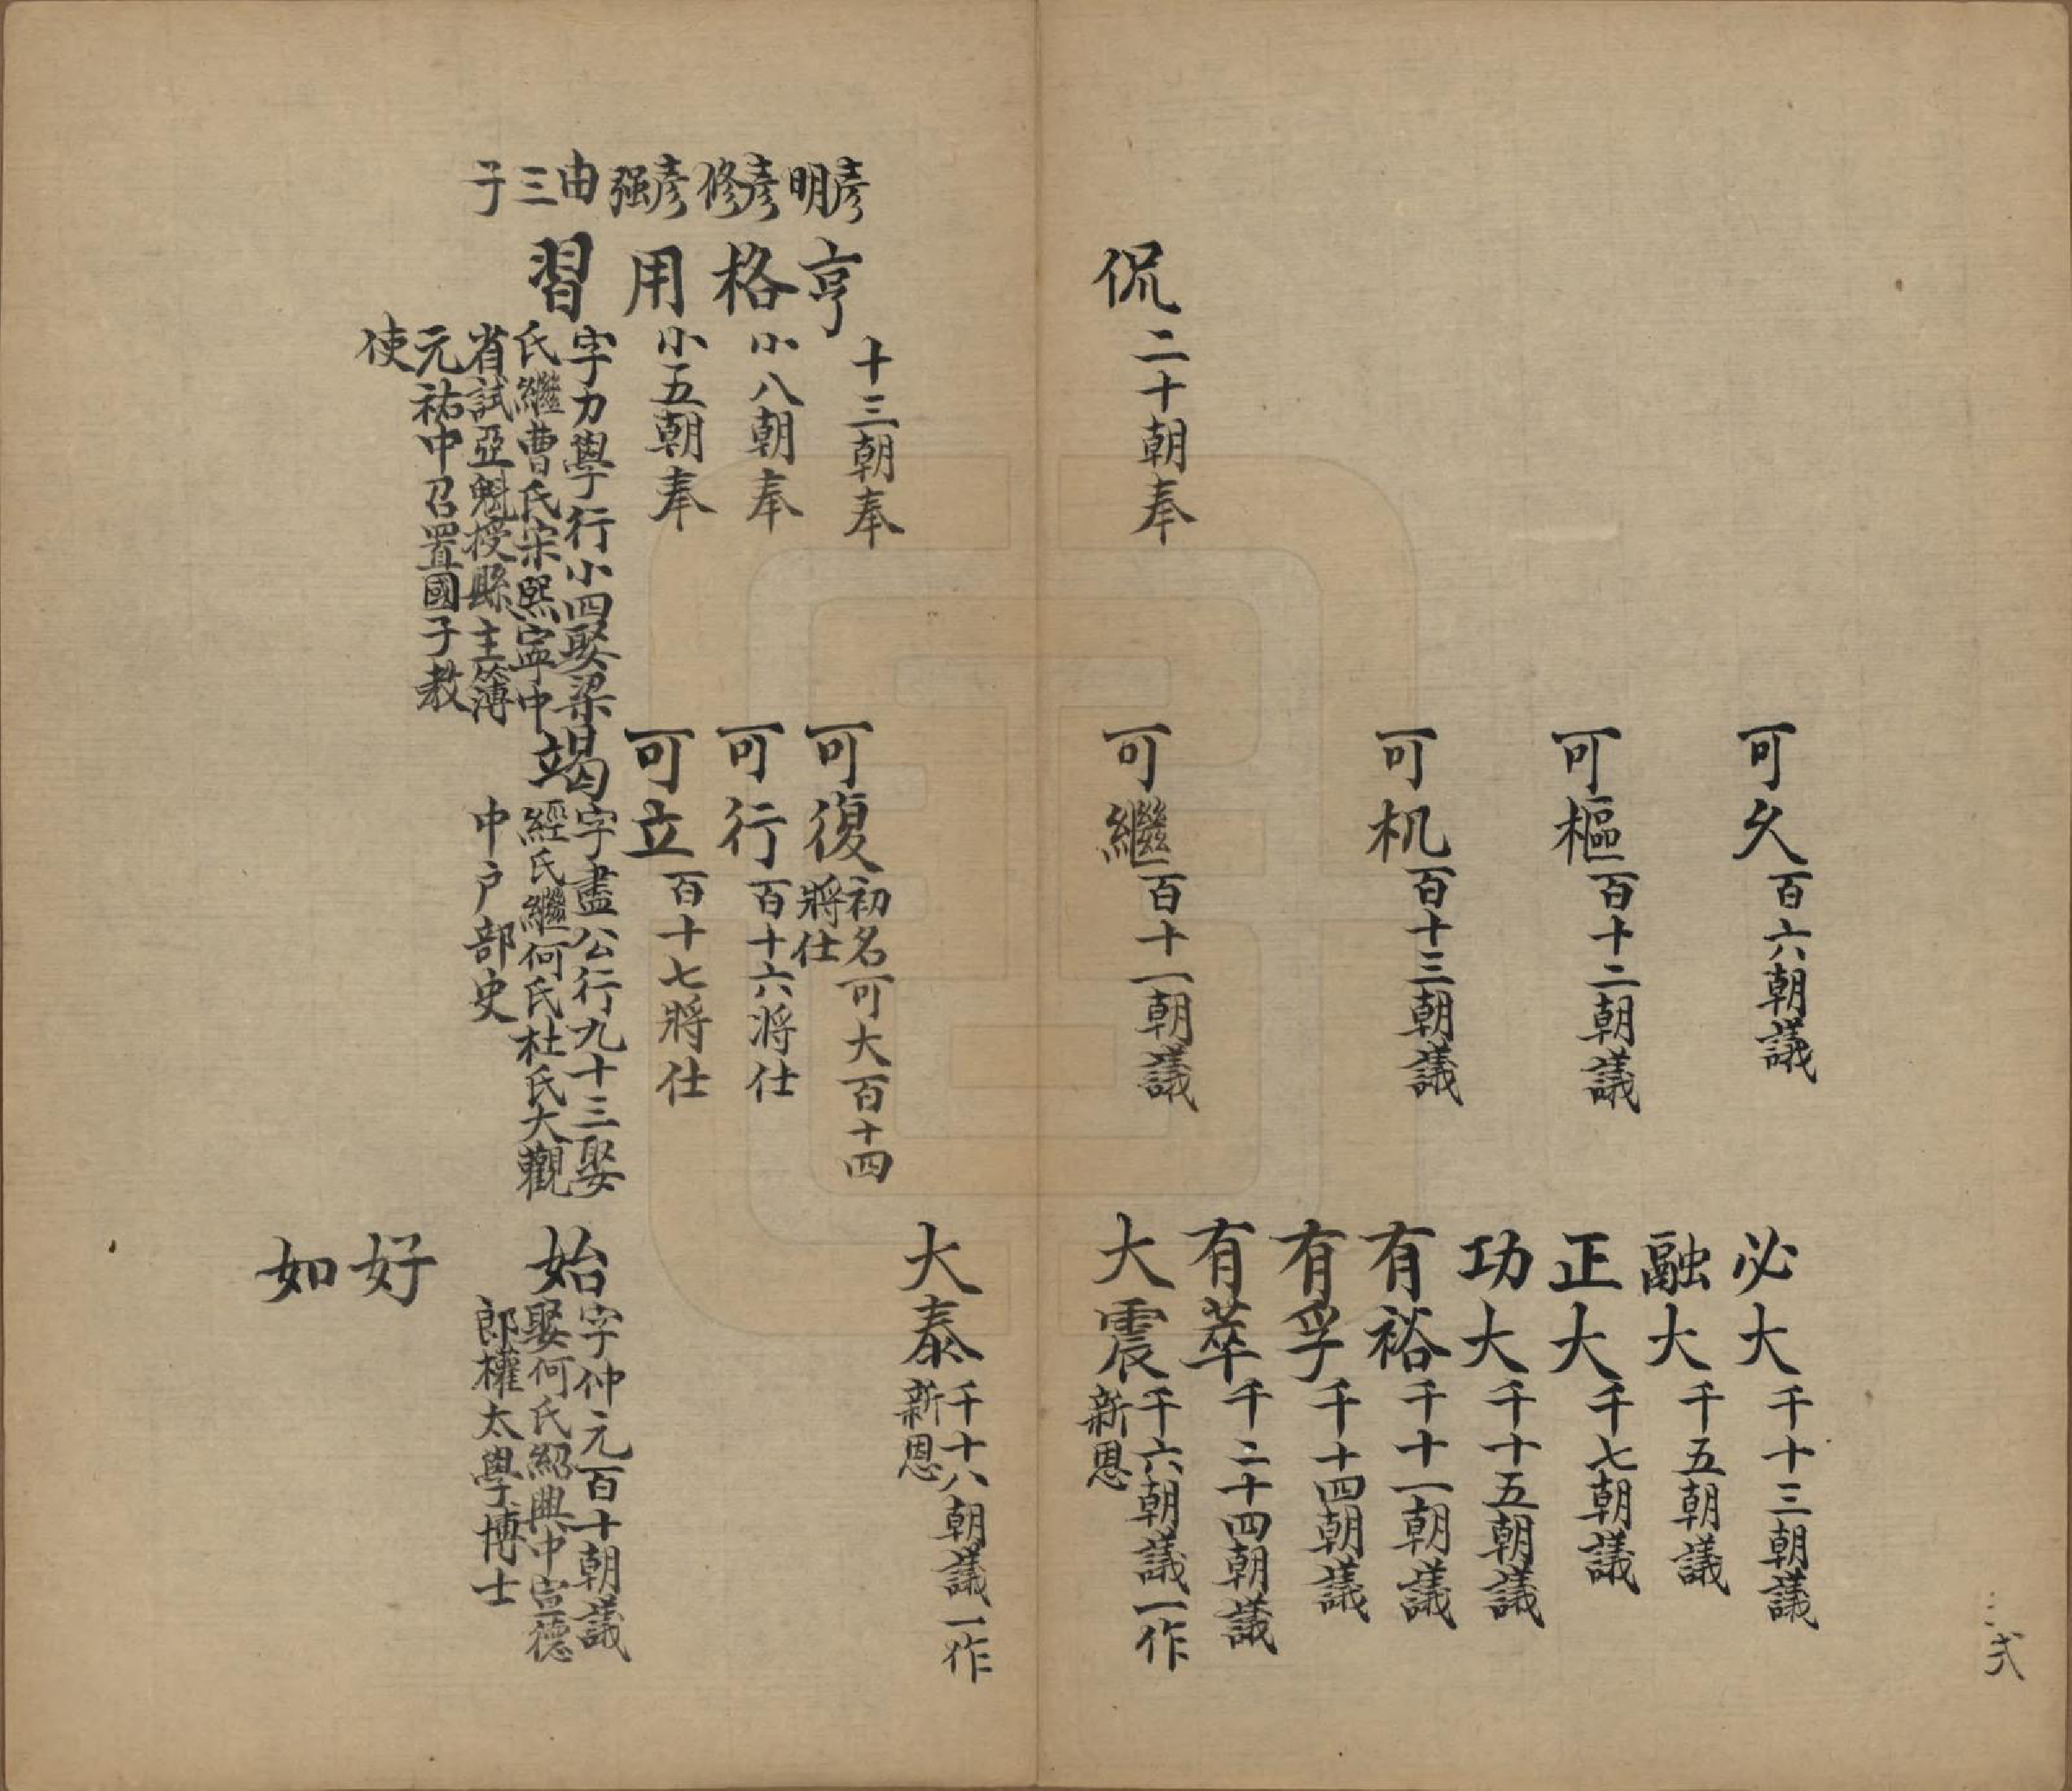 侃二十朝奉
可久百六朝議
可樞百十二朝議
可机百十三朝議
可繼百十一朝議
必大千十三朝議
融大千五朝議
正大千七朝議
功大千十五朝議
有裕千十一朝議
有孚千十四朝議
有萃千二十四朝議
大震千六朝議一作
新恩
彥明
亨十三朝奉
彥修
格小八朝奉
彥强
用小五朝奉
由三子
習字力學行小四娶梁
氏繼曹氏宋熙寧中
省試亞魁授縣主簿
元祐中召置國子教
使
可復初名可大百十四
將仕
可行百十六將仕
可立百十七將仕
竭字盡公行九十三娶
經氏繼何氏杜氏大觀
中户部史
大泰千十八朝議一作
新恩
始字仲元百十朝議
娶何氏紹興中宣德
郎權太學博士
好
如
弍